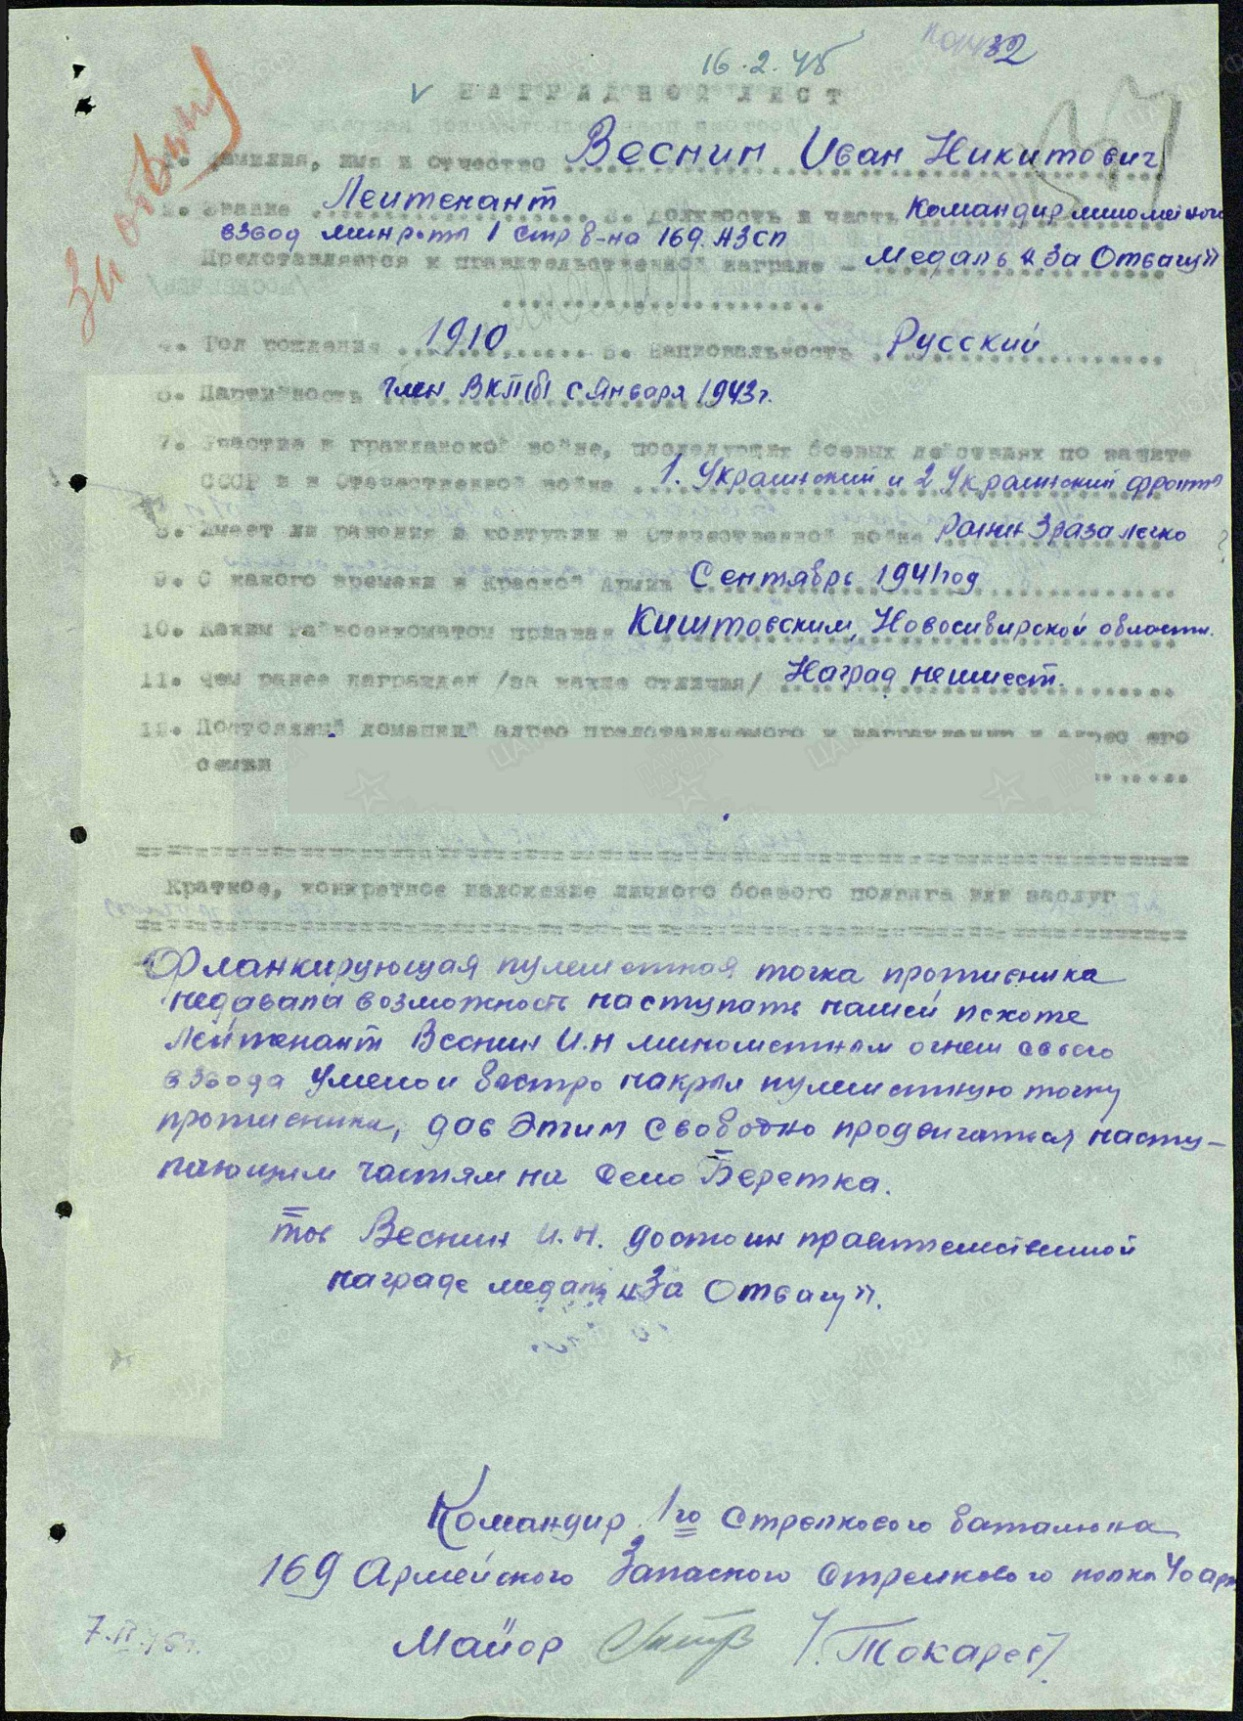 32
16.2.45
НАГРАДНОЙ ЛИСТ
За отвагу
1. Фамилия, имя и отчество Веснин Иван Никитович
2. Звание Лейтенант 3. Должность и часть Командир минометного
взвод минроты 1 стр. б-на 169 АЗСП
Представляется к правительственной награде - Медаль "За Отвагу"
4. Год рождения 1910 5. Национальность Русский
6. Партийность член ВКП(б) с января 1943г.
7. Участие в гражданской войне, последующих боевых действиях по защите
СССР и в Отечественной войне 1. Украинский и 2 Украинский фронты
8. Имеет ли ранения и контузии в Отечественной войне ранен 3 раза легко
9. С какого времени в Красной Армии Сентябрь 1941 год
10. Каким райвоенкоматом призван Киштовским, Новосибирской области.
11. Чем ранее награжден /за какие отличия/ Наград не имеет.
12. Постоянный домашний адрес представляемого к награждению и адрес его
семьи
Краткое, конкретное изложение личного боевого подвига или заслуг
Фланкирующая пулеметная точка противника
недавала возможность наступать нашей пехоте
Лейтенант Веснин И.Н минометным огнем своего
взвода умело и быстро накрыл пулеметную точку
противника, дав этим свободно продвигаться насту-
пающим частям на село Беретка.
тов Веснин И.Н. достоин правительственной
награде медаль "За Отвагу".
Командир 1го стрелкового баталиона
169 Армейского Запасного стрелкового полка 40 арм
Майор /Токарев/
7.II.45г.